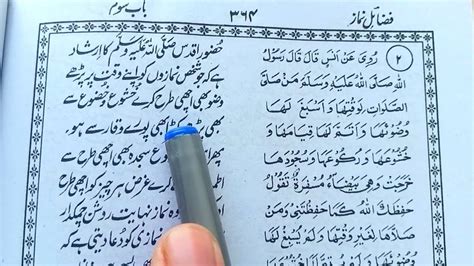 فضائل نماز
۳۶۴
باب سوم
(۲) رُوِيَ عَنْ اَنَسٍ قَالَ قَالَ رَسُوْلُ
اللهِ صَلَّى اللهُ عَلَيْهِ وَسَلَّمَ مَنْ صَلَّى
الصَّلَوَاتِ لِوَقْتِهَا وَ اَسْبَغَ لَهَا
وُضُوْئَهَا وَ اَتَمَّ لَهَا قِيَامَهَا وَ
خُشُوْعَهَا وَ رُكُوْعَهَا وَ سُجُوْدَهَا
خَرَجَتْ وَ هِيَ بَيْضَاءُ مُسْفِرَةٌ تَقُوْلُ
حَفِظَكَ اللهُ كَمَا حَفِظْتَنِيْ وَ مَنْ
صَلَّاهَا لِغَيْرِ وَقْتِهَا وَ لَمْ يُسْبِغْ لَهَا
حضورِ اقدس صلی اللہ علیہ وسلم کا ارشاد
ہے کہ جو شخص نمازوں کو اپنے وقت پر پڑھے
وضو بھی اچھی طرح کرے خشوع و خضوع سے
بھی پڑھے کھڑا بھی پورے وقار سے ہو۔
پھر اسی طرح رکوع سجدہ بھی اچھی طرح سے
کرے غرض ہر چیز کو اچھی طرح
وہ نماز نہایت روشن چمکدار
نمازی کو دعا دیتی ہے کہ